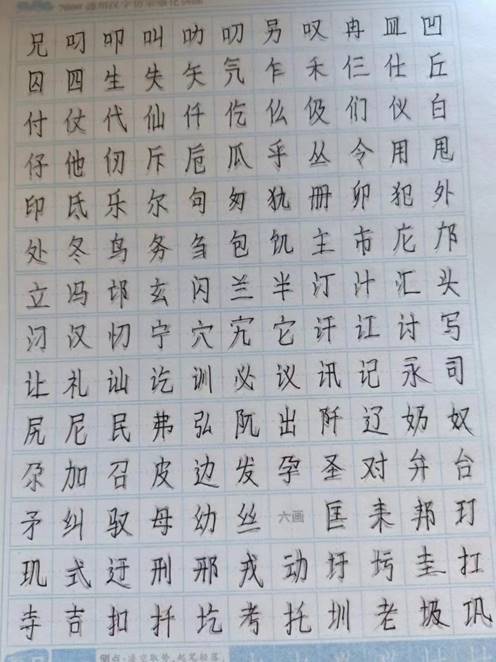 兄叼叩叫叻叨另叹冉皿凹
囚四生失矢氕乍禾仨仕丘
付仗代仙仟仡仫伋们仪白
仔他仞斥卮瓜乎丛令用甩
印氐乐尔句匆犰册卯犯外
处冬鸟务刍包饥主市庀邝
立冯邙玄闪兰半汀汁汇头
汈汉忉宁穴宄它讦讧讨写
让礼讪讫训必议讯记永司
尻尼民弗弘阢出阡辽奶奴
尕加召皮边发孕圣对弁台
矛纠驭母幼丝六画匡耒邦玎
玑式迂刑邢戎动圩圬圭扛
寺吉扣扦圪考托圳老圾巩